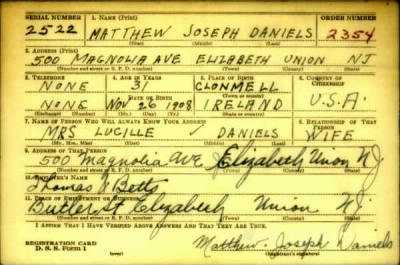 SERIAL NUMBER 1. NAME (Print) ORDER NUMBER
2522 MATTHEW JOSEPH DANIELS 2354
(First) (Middle) (Last)
2. ADDRESS (Print)
500 MAGNOLIA AVE ELIZABETH UNION NJ
(Number and street or R. F. D. number) (Town) (County) (State)
3. TELEPHONE 4. AGE IN YEARS 5. PLACE OF BIRTH 6. COUNTRY OF CITIZENSHIP
NONE 31 CLONMELL
DATE OF BIRTH (Town or county)
NONE NOV 26 1908 IRELAND U.S.A.
(Exchange) (Number) (Mo.) (Day) (Yr.) (State or country)
7. NAME OF PERSON WHO WILL ALWAYS KNOW YOUR ADDRESS 8. RELATIONSHIP OF THAT PERSON
MRS LUCILLE DANIELS WIFE
(Mr., Mrs., Miss) (First) (Middle) (Last)
9. ADDRESS OF THAT PERSON
500 Magnolia Ave Elizabeth Union NJ
(Number and street or R. F. D. number) (Town) (County) (State)
10. EMPLOYER'S NAME
Thomas & Betts
11. PLACE OF EMPLOYMENT OR BUSINESS
Butler St Elizabeth Union NJ
(Number and street or R. F. D. number) (Town) (County) (State)
I AFFIRM THAT I HAVE VERIFIED ABOVE ANSWERS AND THAT THEY ARE TRUE.
REGISTRATION CARD
D. S. S. Form 1 Matthew Joseph Daniels
(over) (Registrant's signature)